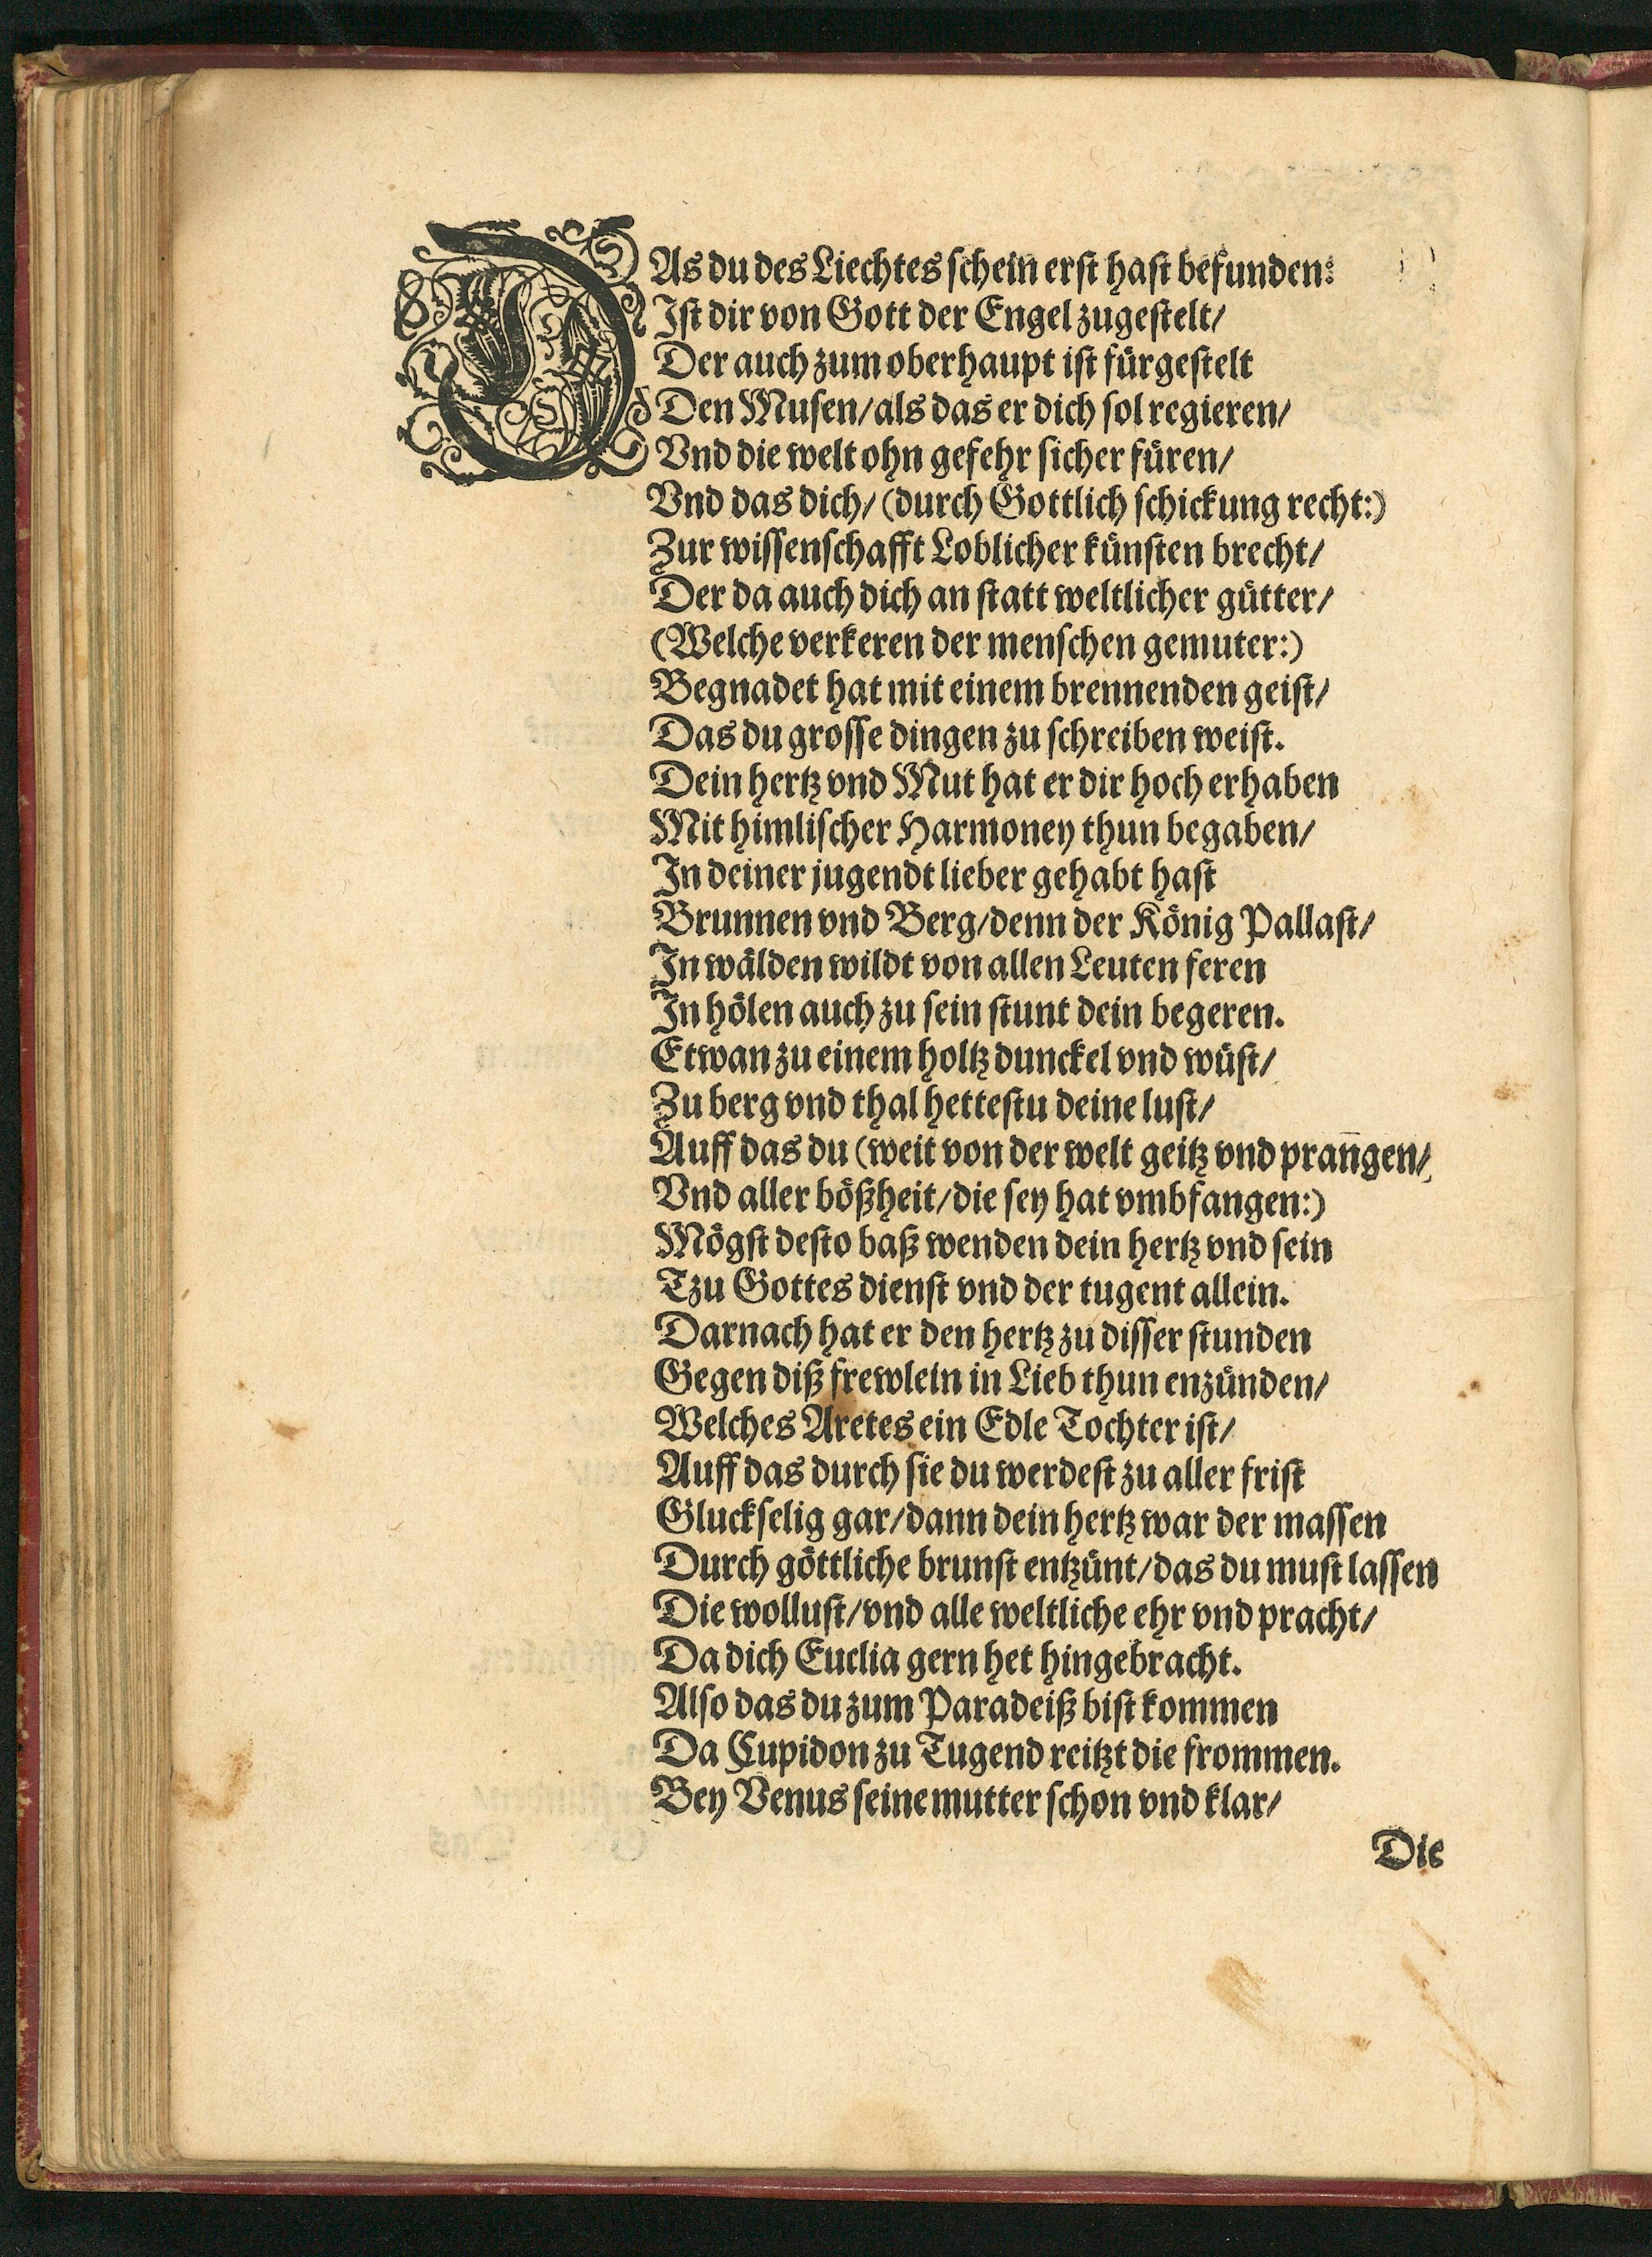 DAs du des Liechtes schein erst hast befunden:
Ist dir von Gott der Engel zugestelt/
Der auch zum oberhaupt ist fürgestelt
Den Musen/als das er dich sol regieren/
Vnd die welt ohn gefehr sicher füren/
Vnd das dich/(durch Gottlich schickung recht:)
Zur wissenschafft Loblicher künsten brecht/
Der da auch dich an statt weltlicher gütter/
(Welche verkeren der menschen gemuter:)
Begnadet hat mit einem brennenden geist/
Das du grosse dingen zu schreiben weist.
Dein hertz vnd Mut hat er dir hoch erhaben
Mit himlischer Harmoney thun begaben/
In deiner jugendt lieber gehabt hast
Brunnen vnd Berg/denn der König Pallast/
In wälden wildt von allen Leuten feren
In hölen auch zu sein stunt dein begeren.
Etwan zu einem holtz dunckel vnd wüst/
Zu berg vnd thal hettestu deine lust/
Auff das du (weit von der welt geitz vnd pran̄gen/
Vnd aller bößheit/die sey hat vmbfangen:)
Mögst desto baß wenden dein hertz vnd sein
Tzu Gottes dienst vnd der tugent allein.
Darnach hat er den hertz zu disser stunden
Gegen diß frewlein in Lieb thun enzünden/
Welches Aretes ein Edle Tochter ist/
Auff das durch sie du werdest zu aller frist
Gluckselig gar/dann dein hertz war der massen
Durch göttliche brunst entzünt/das du must lassen
Die wollust/vnd alle weltliche ehr vnd pracht/
Da dich Euclia gern het hingebracht.
Also das du zum Paradeiß bist kommen
Da Cupidon zu Tugend reitzt die frommen.
Bey Venus seine mutter schon vnd klar/
Die